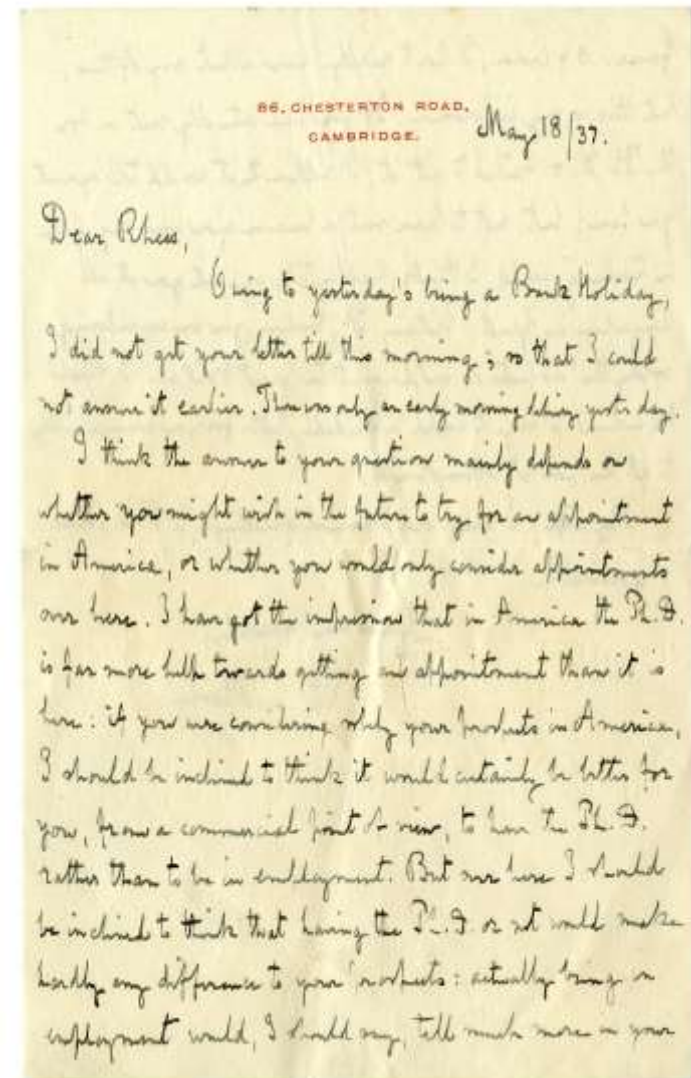 86, CHESTERTON ROAD,
CAMBRIDGE.
May 18/37.
Dear Rhees,
Owing to yesterday's being a Bank Holiday,
I did not get your letter till this morning; so that I could
not answer it earlier. There was only an early morning delivery yesterday.
I think the answer to your question mainly depends on
whether you might wish in the future to try for an appointment
in America, or whether you would only consider appointments
over here. I have got the impression that in America the Ph.D.
is far more help towards getting an appointment than it is
here: if you were considering only your prospects in America,
I should be inclined to think it would certainly be better for
you, from a commercial point of view, to have the Ph.D.
rather than to be in employment. But over here I should
be inclined to think that having the Ph.D or not would make
hardly any difference to your prospects: actually being in
employment would, I should say, tell much more in your